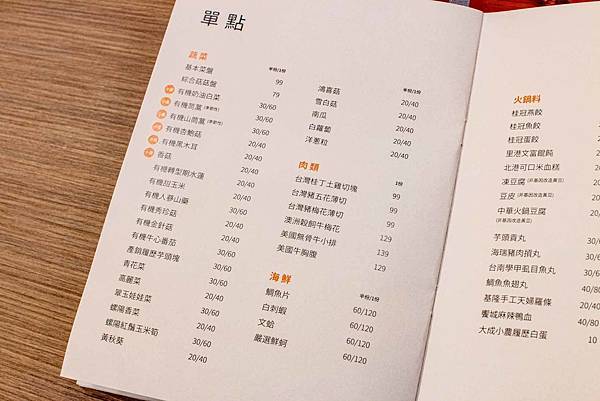 單點
蔬菜
半份/1份
基本菜盤 99
綜合菇菇盤 79
有機奶油白菜 30/60
有機茼蒿 (季節性) 20/40
有機山茼蒿 (季節性) 30/60
有機杏鮑菇 20/40
有機黑木耳
香菇 20/40
有機轉型期水蓮
有機甜玉米
有機人蔘山藥 20/40
有機秀珍菇 20/40
有機金針菇 20/40
有機牛心番茄 20/40
產銷履歷芋頭塊 30/60
青花菜 20/40
高麗菜 20/40
翠玉娃娃菜 20/40
螺陽香菜 20/40
螺陽紅鬚玉米筍 30/60
黃秋葵 20/40
半份/1份
鴻喜菇 20/40
雪白菇 20/40
南瓜 20/40
白蘿蔔 20/40
洋蔥粒 20/40
肉類
1份
台灣桂丁土雞切塊 99
台灣豬五花薄切 99
台灣豬梅花薄切 99
澳洲穀飼牛梅花 129
美國無骨牛小排 139
美國牛胸腹 129
海鮮
半份/1份
鯛魚片 60/120
白刺蝦 60/120
文蛤 60/120
嚴選鮮蚵 60/120
火鍋料
桂冠燕餃
桂冠魚餃
桂冠蛋餃
里港文富餛飩
北港可口米血糕
凍豆腐 (非基因改造黃豆)
豆皮 (非基因改造黃豆)
中華火鍋豆腐
(非基因改造黃豆)
芋頭貢丸
海瑞豬肉摃丸
台南學甲虱目魚丸 30/
鯛魚魚翅丸 30/
基隆手工天婦羅條 20/4
饗城麻辣鴨血 40/80
大成小農履歷白蛋 10